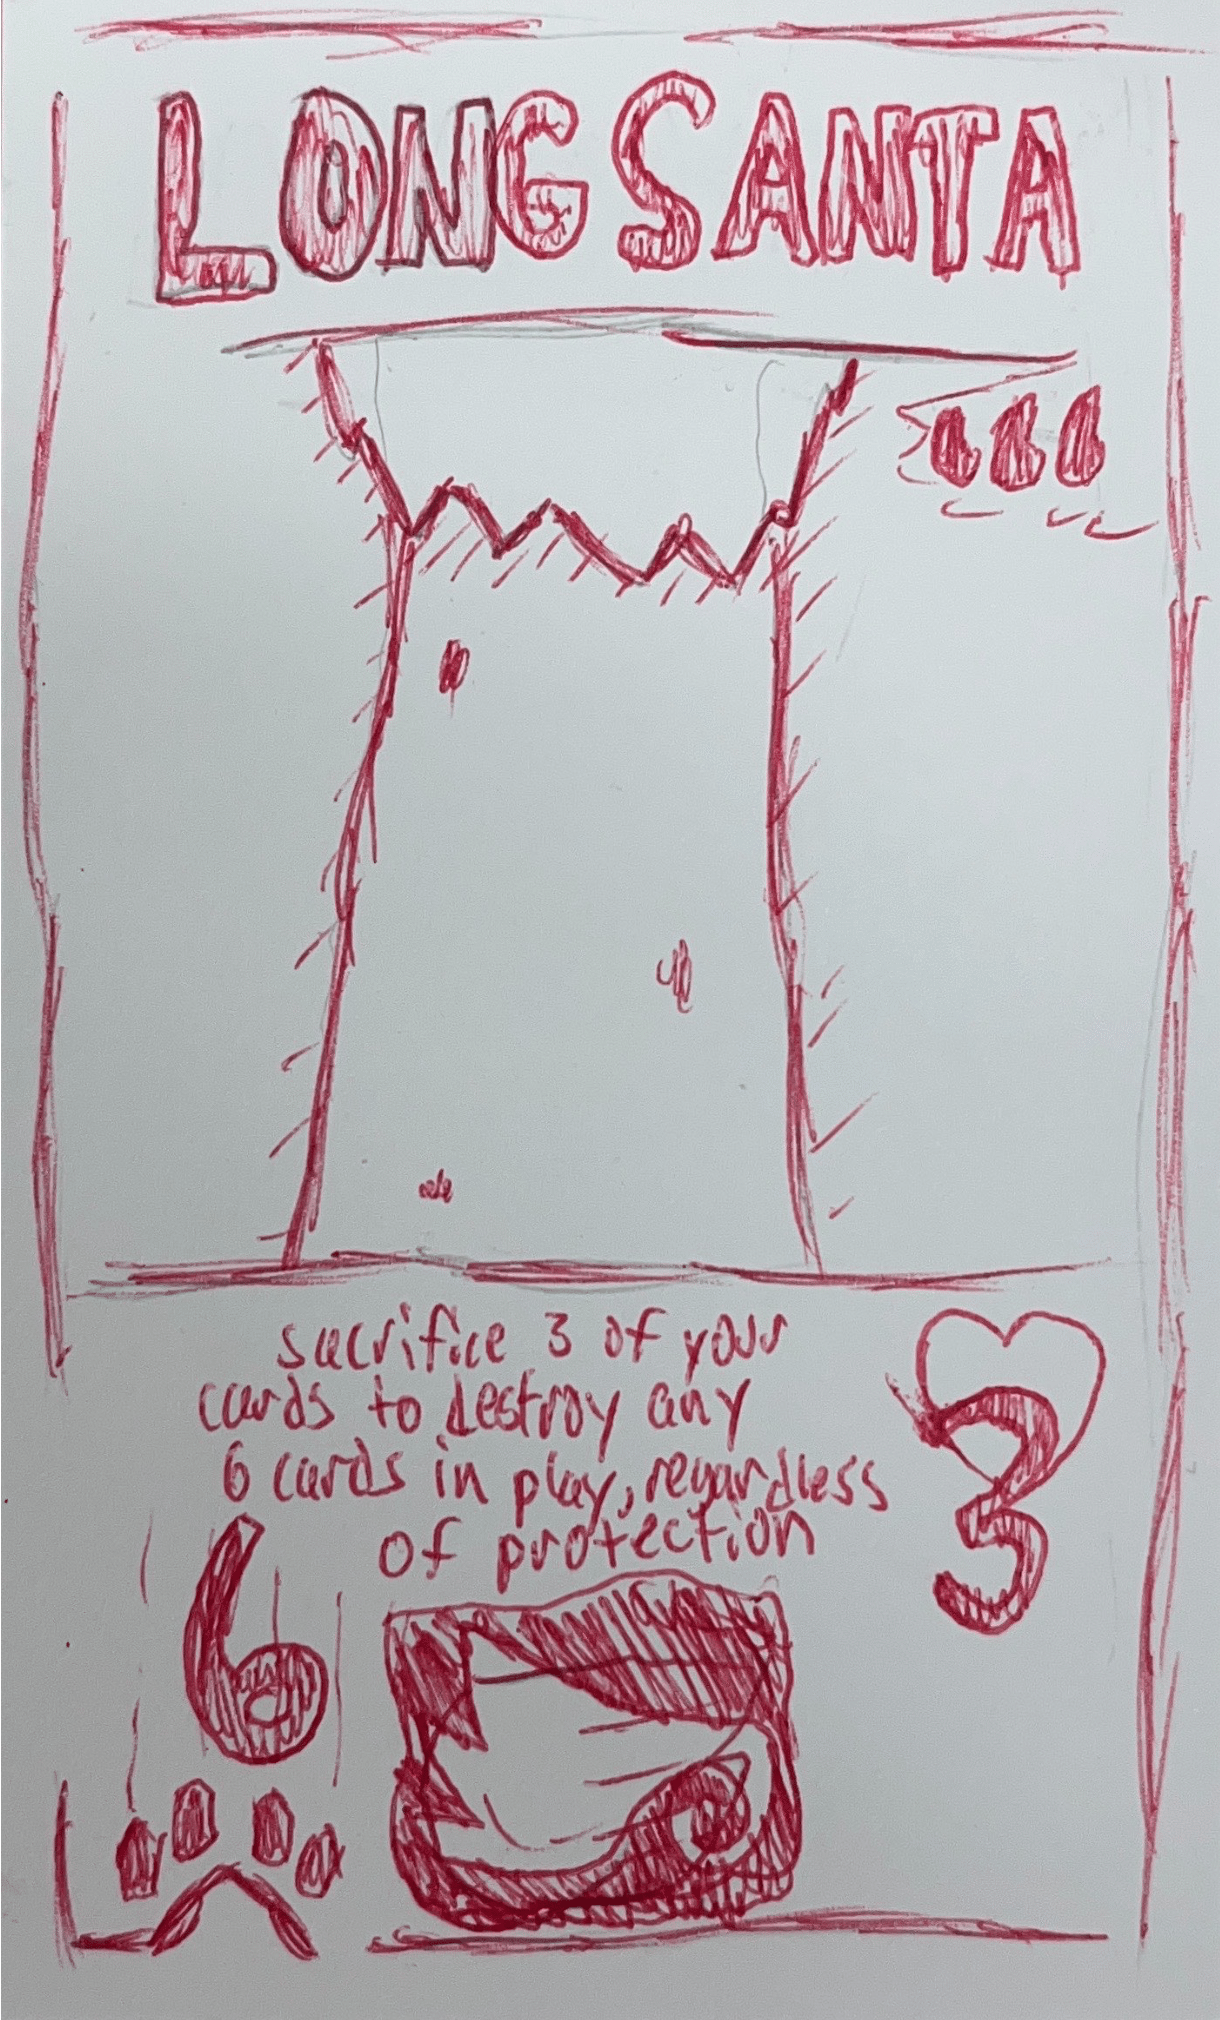 LONG SANTA
sacrifice 3 of your
cards to destroy any
6 cards in play, regardless
of protection
3
6